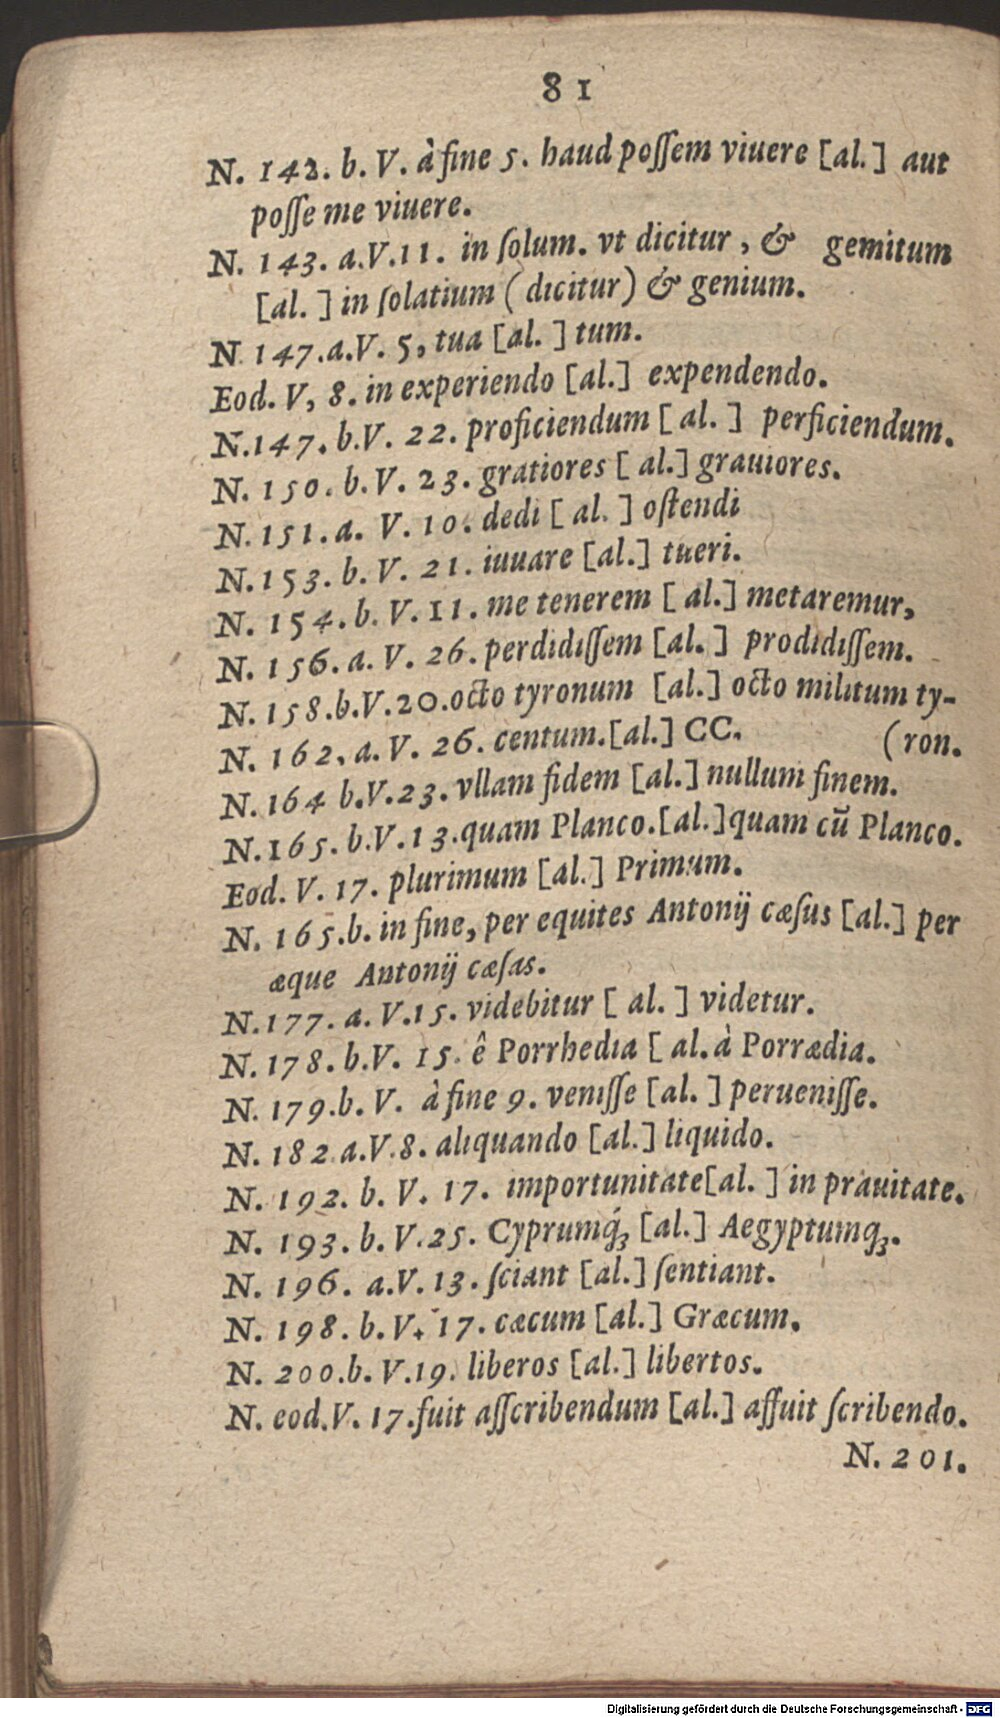 81
N. 142. b. V. à fine 5. haud poſſem viuere [al.] aut
poſſe me viuere.
N. 143. a.V.11. in ſolum. vt dicitur, & gemitum
[al. ] in ſolatium (dicitur) & genium.
N. 147.a.V. 5, tua [al. ] tum.
Eod. V, 8. in experiendo [al.] expendendo.
N.147. b.V. 22. proficiendum [ al. ] perficiendum.
N. 150. b. V. 23. gratiores [ al.] grauiores.
N. 151. a. V. 10. dedi [ al. ] oſtendi
N. 153. b. V. 21. iuuare [al.] tueri.
N. 154. b. V. 11. me tenerem [ al.] metaremur,
N. 156. a. V. 26. perdidiſſem [al. ] prodidiſſem.
N. 158.b.V.20.octo tyronum [al.] octo militum ty-
N. 162. a. V. 26. centum.[al.] CC. (ron.
N. 164 b.V.23. vllam fidem [al.] nullum finem.
N.165. b.V.13.quam Planco.[al.]quam cū Planco.
Eod. V. 17. plurimum [al.] Primum.
N. 165.b. in fine, per equites Antonij cæſus [al.] per
æque Antonij cæſas.
N.177. a. V.15. videbitur [ al. ] videtur.
N. 178. b.V. 15. ê Porrhedia [ al. à Porrædia.
N. 179.b. V. à fine 9. veniſſe [al. ] perueniſſe.
N. 182 a.V.8. aliquando [al.] liquido.
N. 192. b. V. 17. importunitate[al. ] in prauitate.
N. 193. b. V.25. Cyprumq́ꝫ [al.] Aegyptumqꝫ.
N. 196. a.V. 13. ſciant [al.] ſentiant.
N. 198. b. V. 17. cæcum [al.] Græcum.
N. 200.b. V.19. liberos [al.] libertos.
N. eod.V. 17.fuit aſſcribendum [al.] affuit ſcribendo.
N. 201.
Digitalisierung gefördert durch die Deutsche Forschungsgemeinschaft - DFG